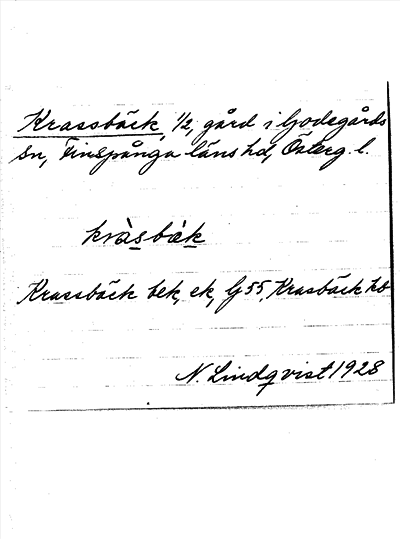 Krassbäck, 1/2, gård i Godegårds
sn, Finspånga läns hd, Österg. l.
kràsbàk
Krassbäck bek, ek, G 55, Krasbäck hb
N. Lindqvist 1928